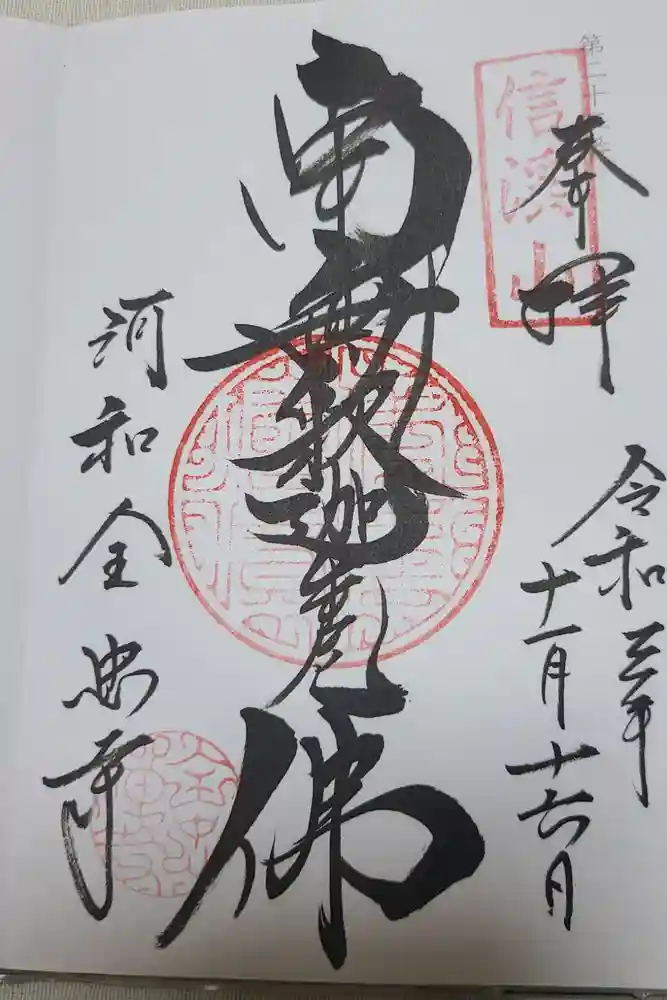 奉拝
信渓山
令和三年
十一月十六日
南無釈迦牟尼佛
河和全忠寺